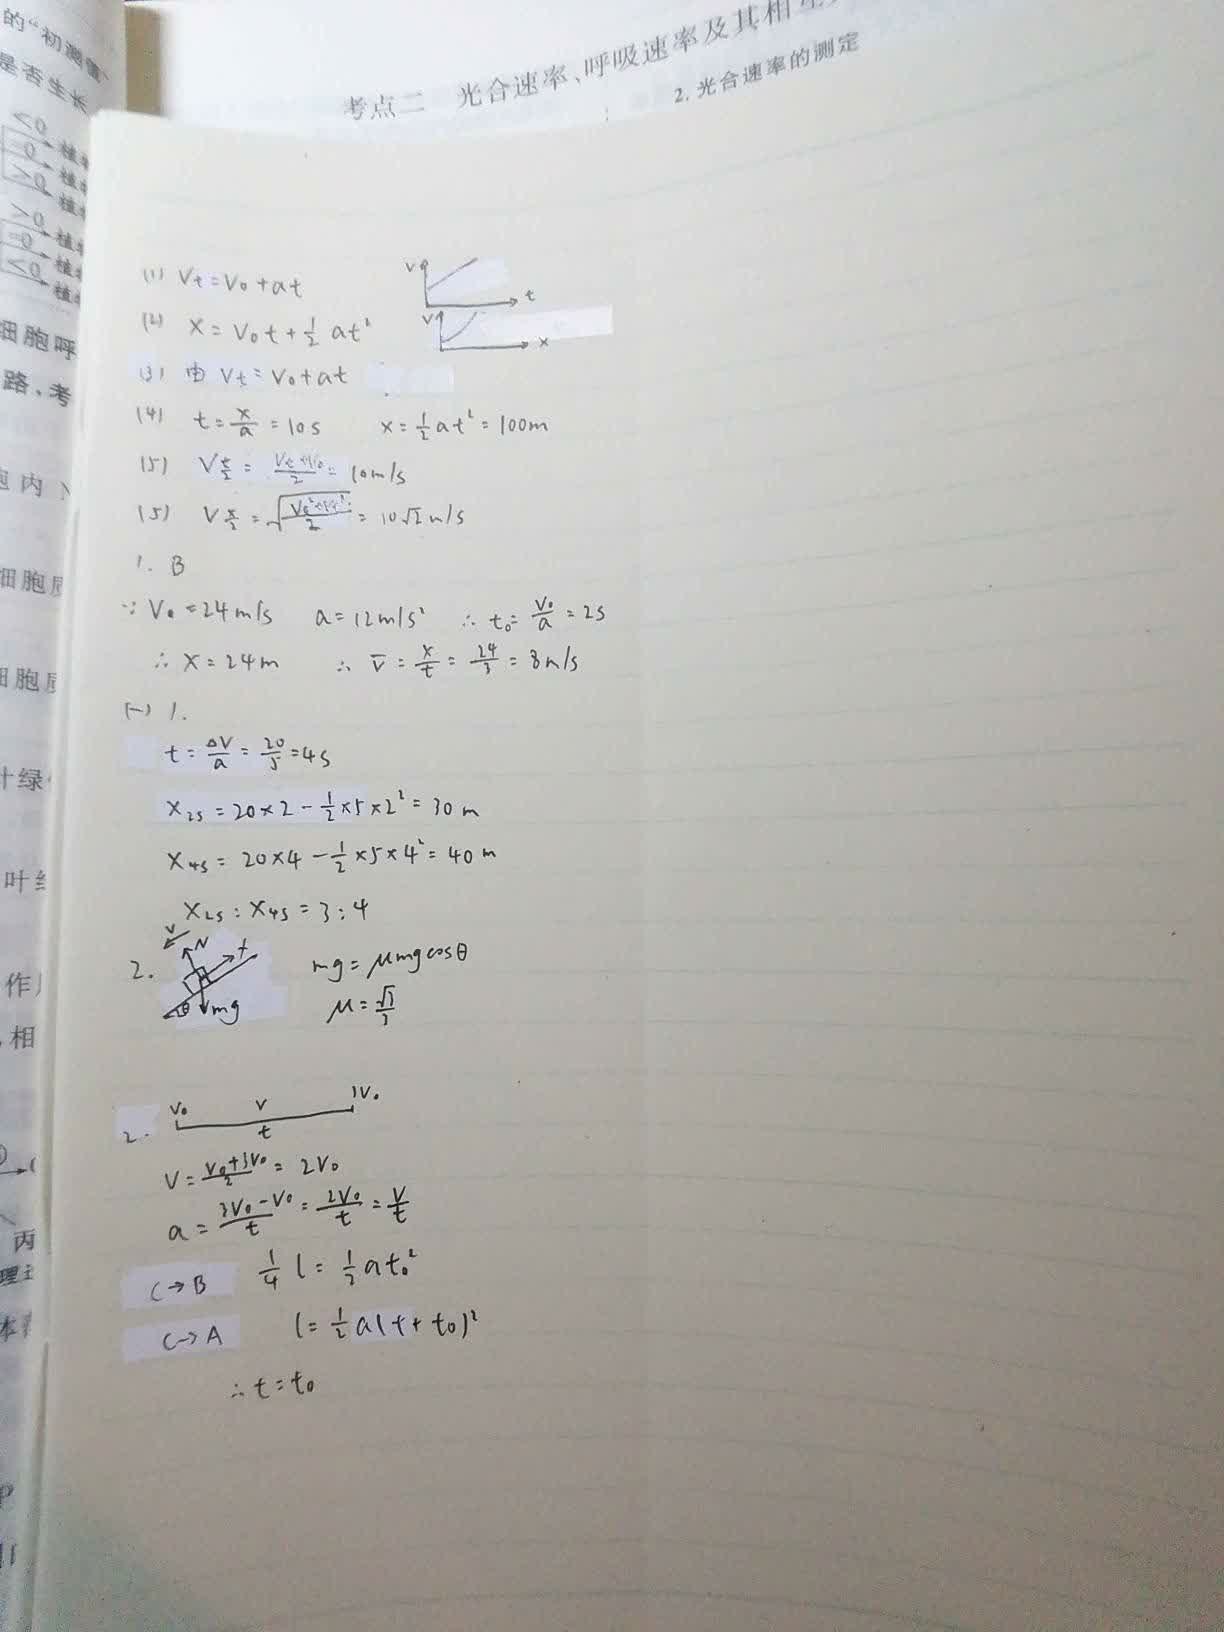 的“初测值”
是否生长
考点二 光合速率、呼吸速率及其相互
2. 光合速率的测定
<0 植
=0 植
>0 植
>0 植
=0 植
<0 植
细胞呼
路、考
胞内
细胞质
细胞质
叶绿
叶绿
作
相
丙
(1) Vt=V₀+at
V
t
(2) x=V₀t+½at²
V
x
(3) 由 Vt=V₀+at
(4) t=x/a=10s x=½at²=100m
(5) V t/2 = (Vt+V₀)/2 = 10m/s
(5) V x/2 = √((V₀²+Vt²)/2) = 10√2 m/s
1. B
∵ V₀=24m/s a=12m/s² ∴ t₀=V₀/a=2s
∴ x=24m ∴ v̄=x/t=24/3=8m/s
(一) 1.
t=ΔV/a=20/5=4s
X2s=20×2-½×5×2²=30m
X4s=20×4-½×5×4²=40m
X2s:X4s=3:4
2. V N f θ mg
mg=μmgcosθ
μ=√3/3
2. V₀ V 3V₀
t
V=(V₀+3V₀)/2=2V₀
a=(3V₀-V₀)/t=2V₀/t=V/t
C→B ¼l=½at₀²
C→A l=½a(t+t₀)²
∴ t=t₀